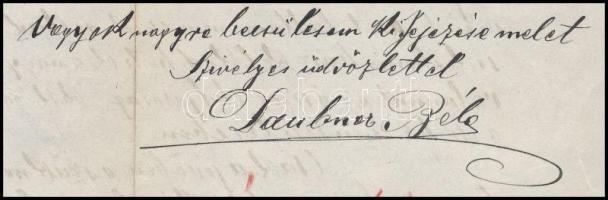 Vagyok nagyra becsülésem kifejezése melet
Szivélyes üdvözlettel
Daubner Béla